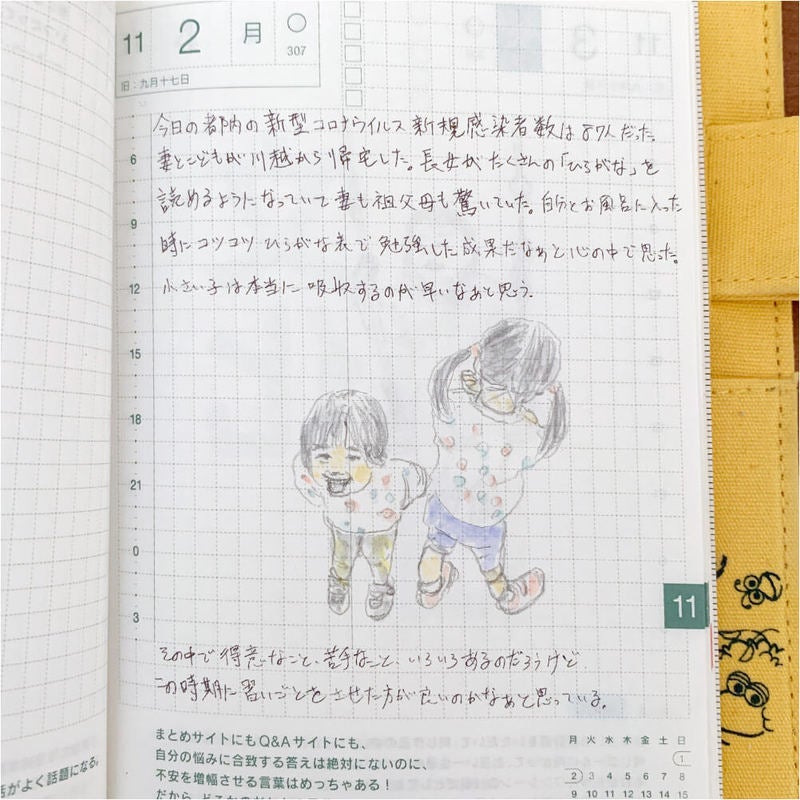 11 2 月 307
旧：九月十七日
今日の都内の新型コロナウイルス新規感染者数は87人だった。
6 妻とこどもが川越から帰宅した。長女がたくさんの「ひらがな」を
読めるようになっていて妻も祖父母も驚いていた。自分とお風呂に入った
9
時にコツコツひらがな表で勉強した成果だなぁと心の中で思った。
12 小さい子は本当に吸収するのが早いなぁと思う。
15
18
21
0
3
11
その中で得意なこと、苦手なこと、いろいろあるのだろうけど
この時期に習いごとをさせた方が良いのかなぁと思っている。
まとめサイトにもQ&Aサイトにも、
自分の悩みに合致する答えは絶対にないのに、
不安を増幅させる言葉はめっちゃある！
月 火 水 木 金 土 日
1
2 3 4 5 6 7 8
9 10 11 12 13 14 15
がよく話題になる。
11 3